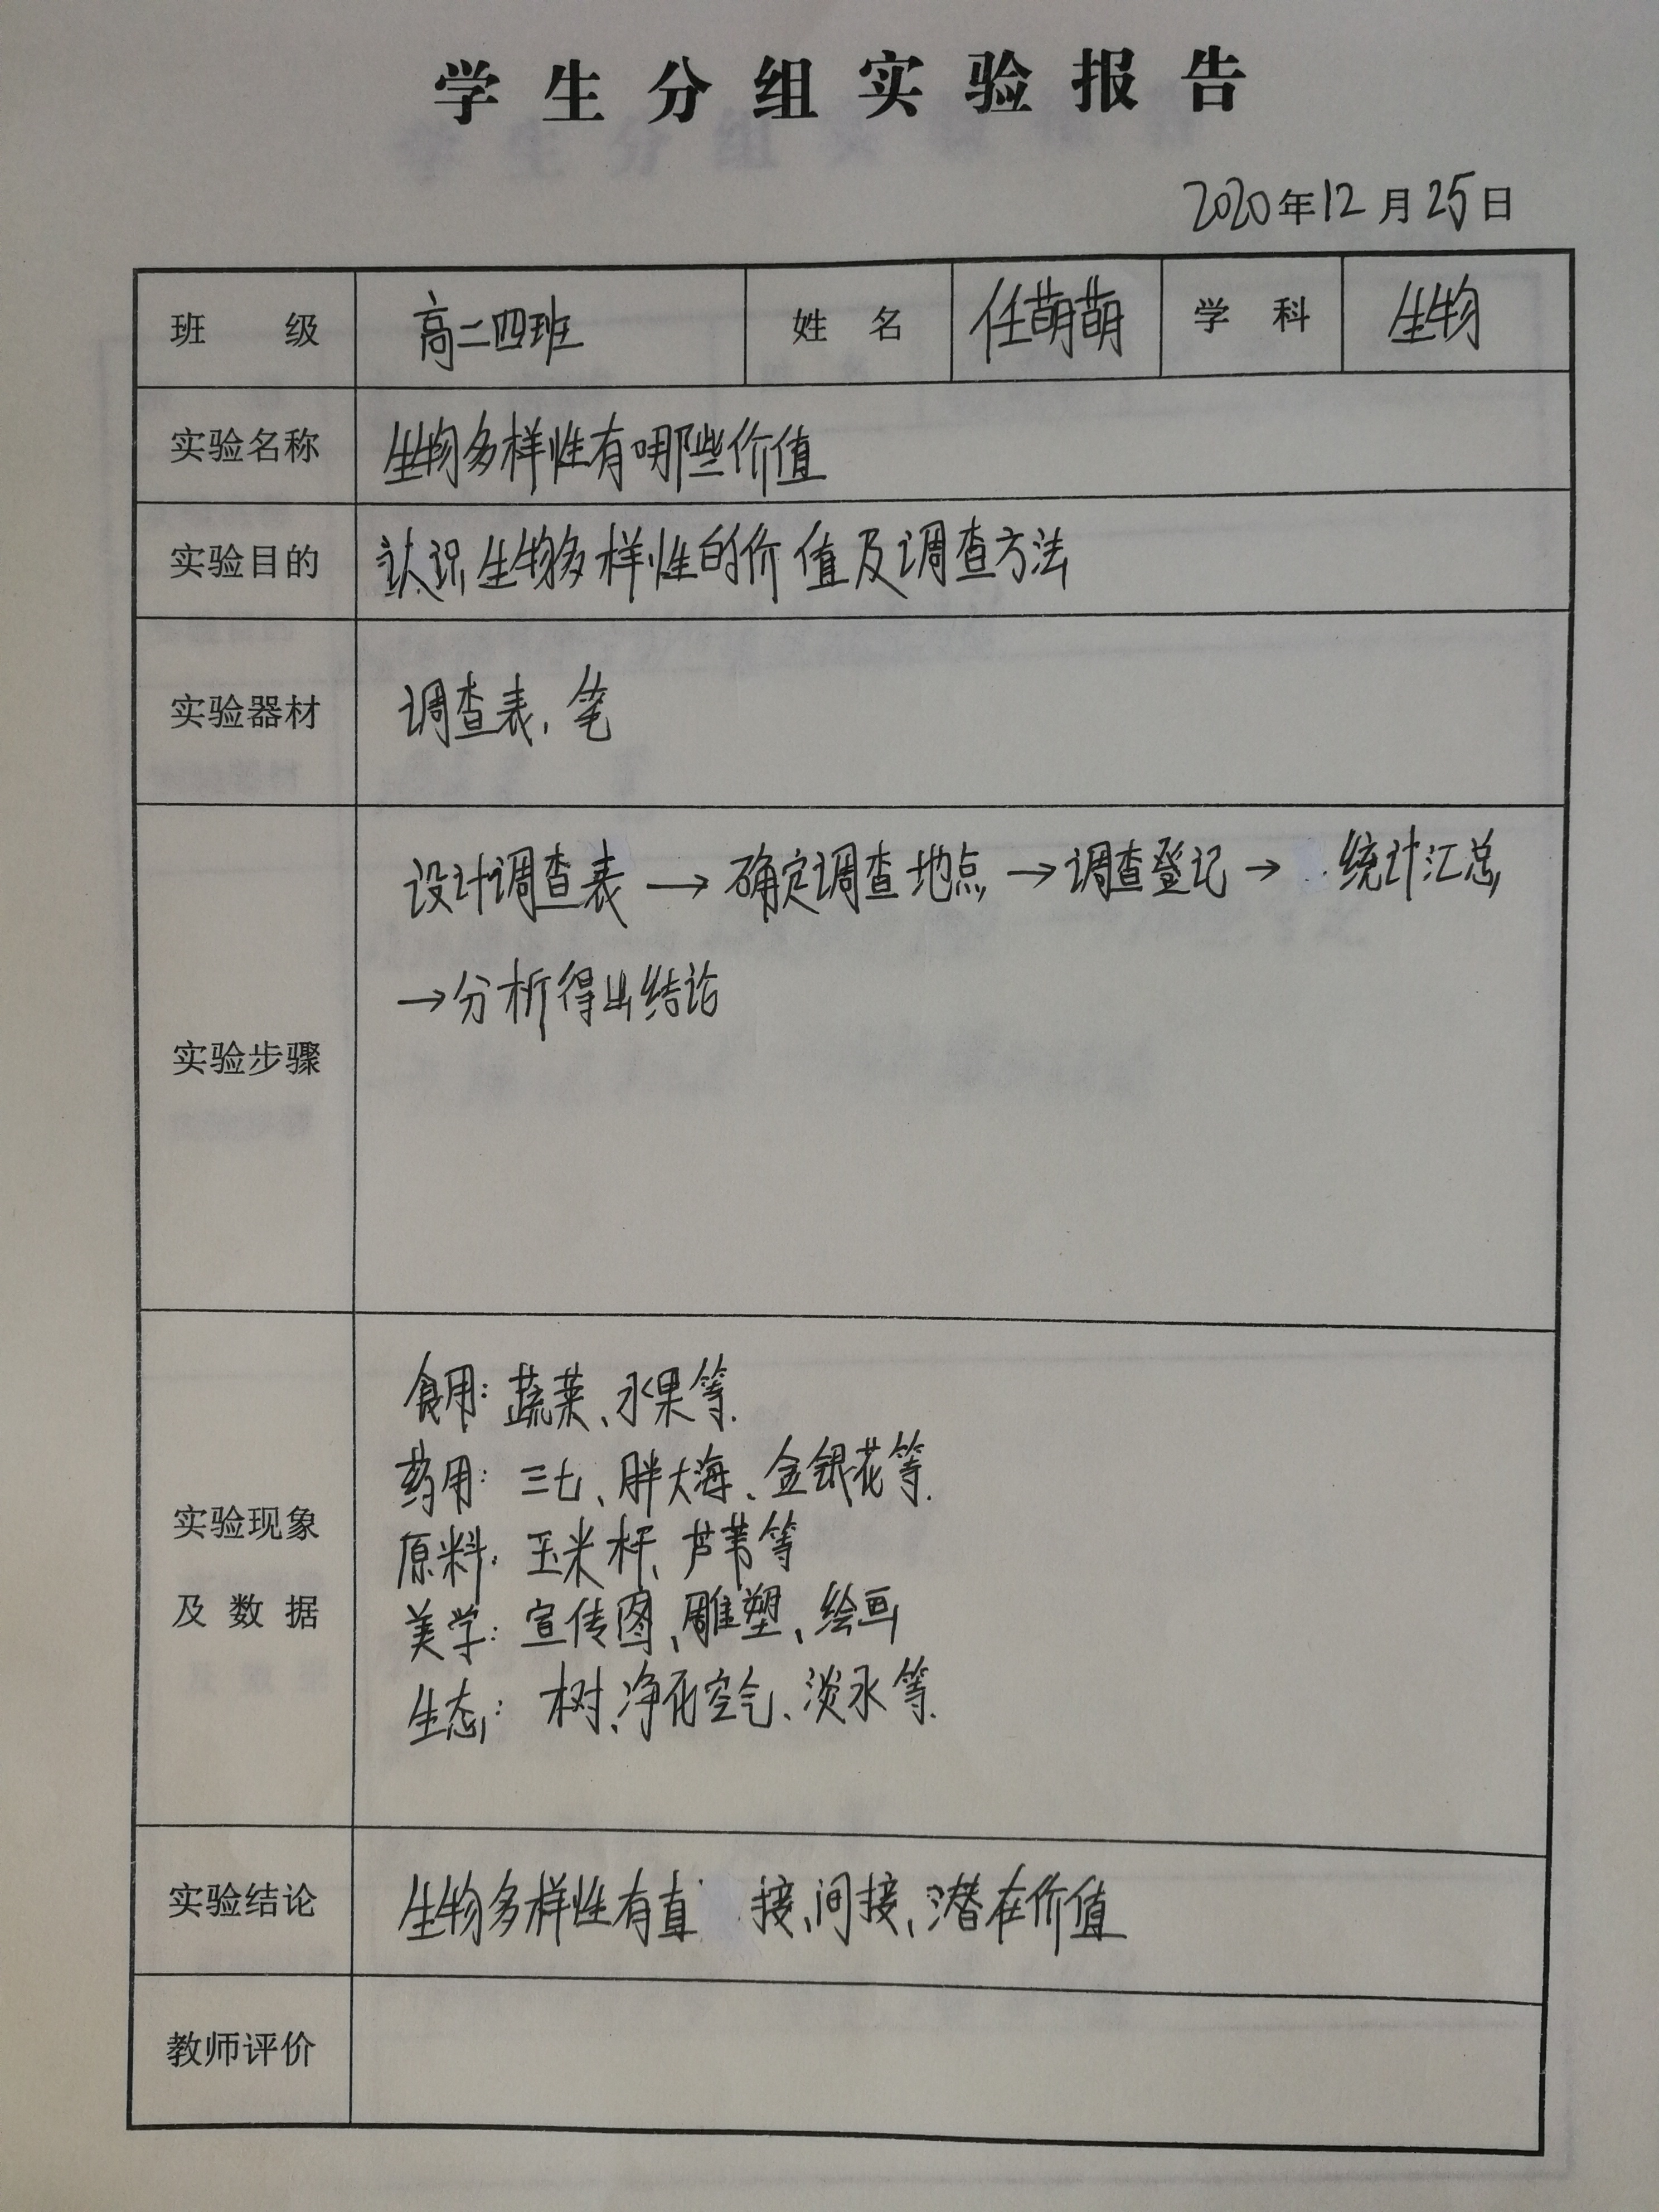 学生分组实验报告
2020年12月25日
班级 高二四班 姓名 任萌萌 学科 生物
实验名称 生物多样性有哪些价值
实验目的 认识生物多样性的价值及调查方法
实验器材 调查表、笔
设计调查表→确定调查地点→调查登记→统计汇总
→分析得出结论
实验步骤
食用：蔬菜、水果等.
药用：三七、胖大海、金银花等.
原料：玉米杆、芦苇等
实验现象
及数据
美学：宣传图、雕塑、绘画
生态：树、净化空气、淡水等.
实验结论 生物多样性有直接、间接、潜在价值
教师评价